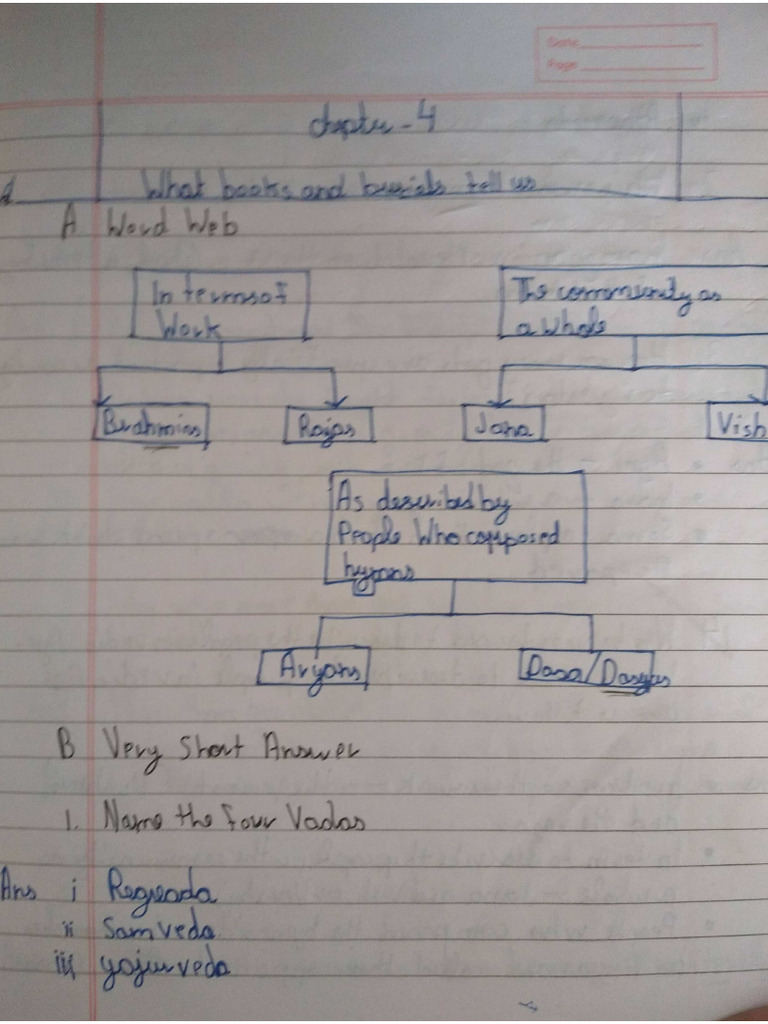 Date
Page
Chapter - 4
What books and burials tell us
A Word Web
In terms of
Work
The community as
a whole
Brahmins
Rajas
Jana
Vish
As described by
People Who composed
hymns
Aryans
Dasa/Dasyus
B Very Short Answer
1. Name the four Vadas
Ans i Regveada
ii Samveda
iii yojurveda